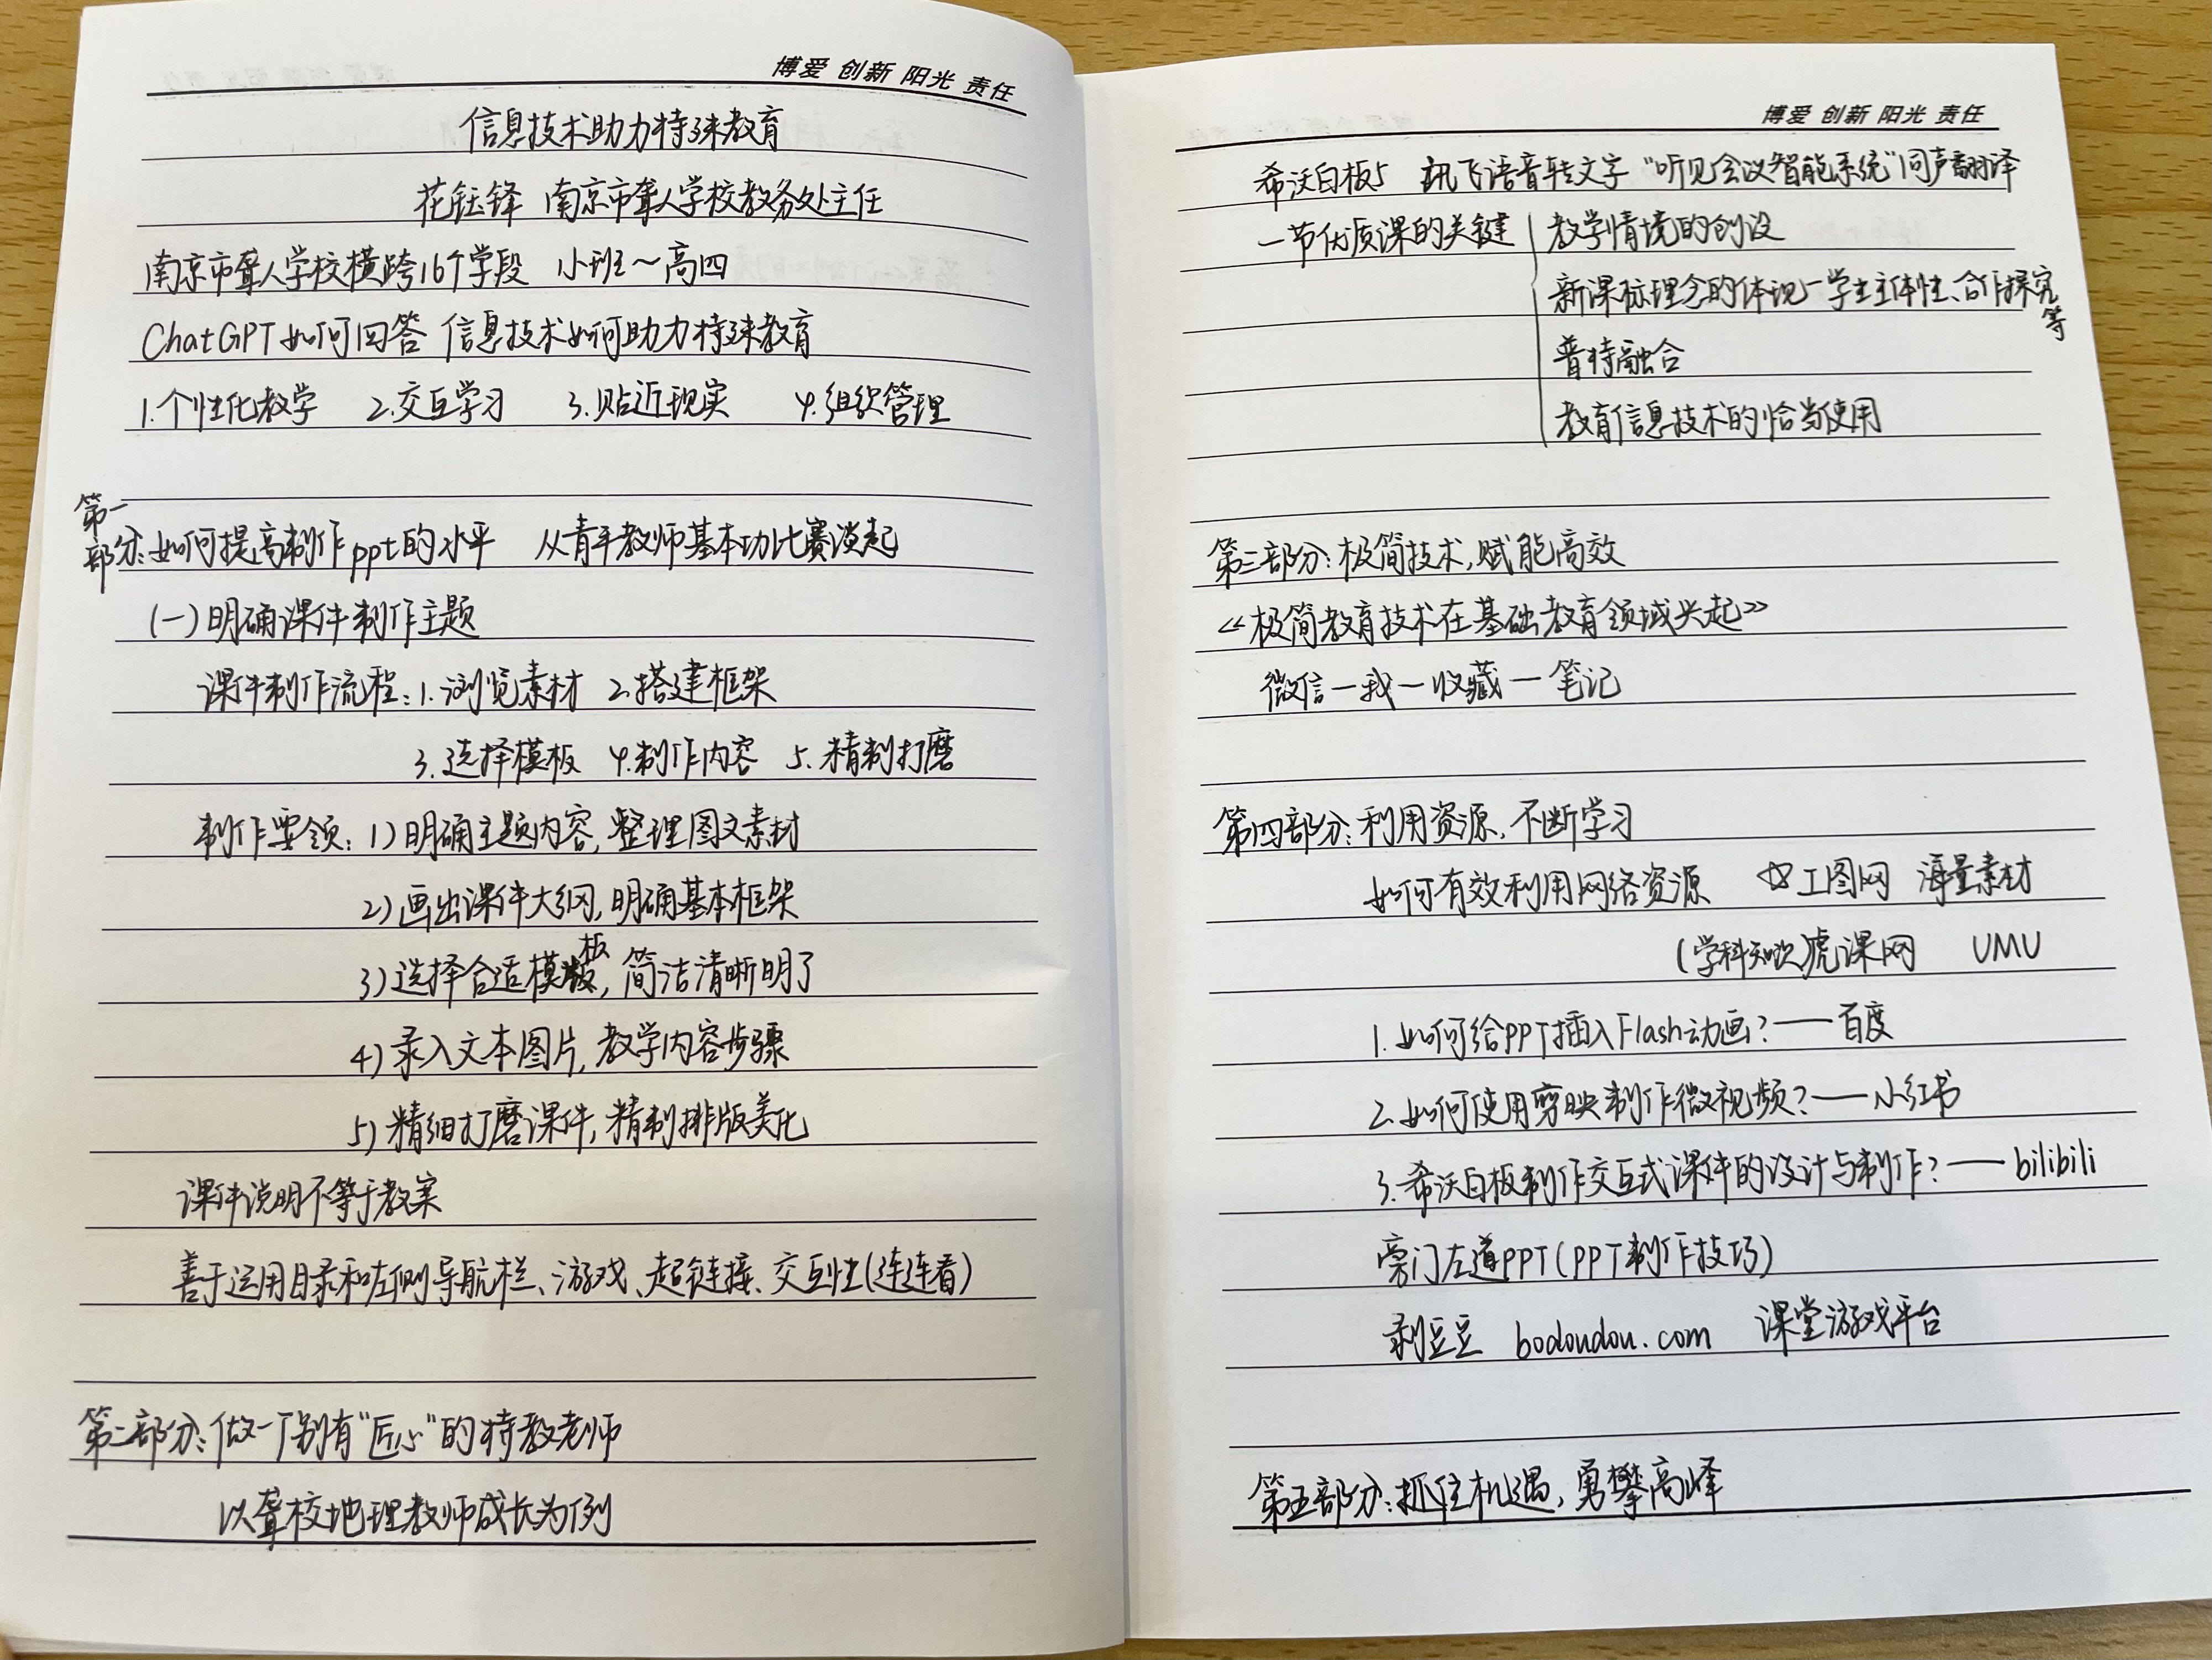 博爱 创新 阳光 责任
信息技术助力特殊教育
花钰锋 南京市聋人学校教务处主任
南京市聋人学校横跨16个学段 小班～高四
ChatGPT如何回答 信息技术如何助力特殊教育
1.个性化教学 2.交互学习 3.贴近现实 4.组织管理
第一部分:如何提高制作ppt的水平 从青年教师基本功比赛谈起
(一)明确课件制作主题
课件制作流程:1.浏览素材 2.搭建框架
3.选择模板 4.制作内容 5.精制打磨
制作要领:1)明确主题内容,整理图文素材
2)画出课件大纲,明确基本框架
3)选择合适模板,简洁清晰明了
4)录入文本图片,教学内容步骤
5)精细打磨课件,精制排版美化
课件说明不等于教案
善于运用目录和左侧导航栏、游戏、超链接、交互性(连连看)
第二部分:做一个别有"匠心"的特教老师
以聋校地理教师成长为例
博爱 创新 阳光 责任
希沃白板5 讯飞语音转文字 "听见会议智能系统"同声翻译
一节优质课的关键 教学情境的创设
新课标理念的体现—学生主体性、合作探究等
普特融合
教育信息技术的恰当使用
第三部分:极简技术,赋能高效
《极简教育技术在基础教育领域兴起》
微信—我—收藏—笔记
第四部分:利用资源,不断学习
如何有效利用网络资源 ☆工图网 海量素材
(学科知识)虎课网 UMU
1.如何给PPT插入Flash动画?——百度
2.如何使用剪映制作微视频?——小红书
3.希沃白板制作交互式课件的设计与制作?——bilibili
旁门左道PPT(PPT制作技巧)
剥豆豆 bodoudou.com 课堂游戏平台
第五部分:抓住机遇,勇攀高峰